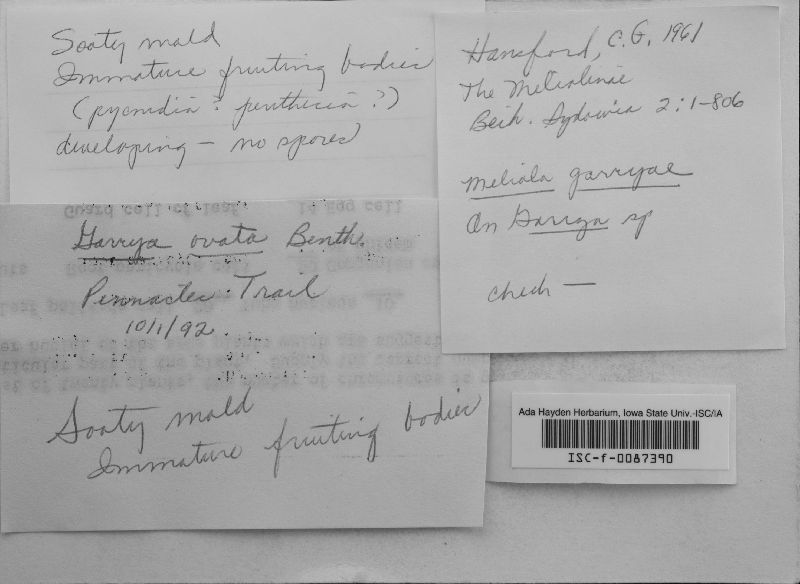 Sooty mold
Immature fruiting bodies
(pycnidia? perithecia?)
developing — no spores
Hansford, C.G. 1961
The Meliolinie
Beih. Sydowia 2:1-806
Meliola garryae
On Garrya sp
check —
Garrya ovata Benth.
Pinnacles Trail
10/1/92
Sooty mold
Immature fruiting bodies
Ada Hayden Herbarium, Iowa State Univ.-ISC/IA
ISC-f-0087390
Guard cell of leaf 14 Egg cell